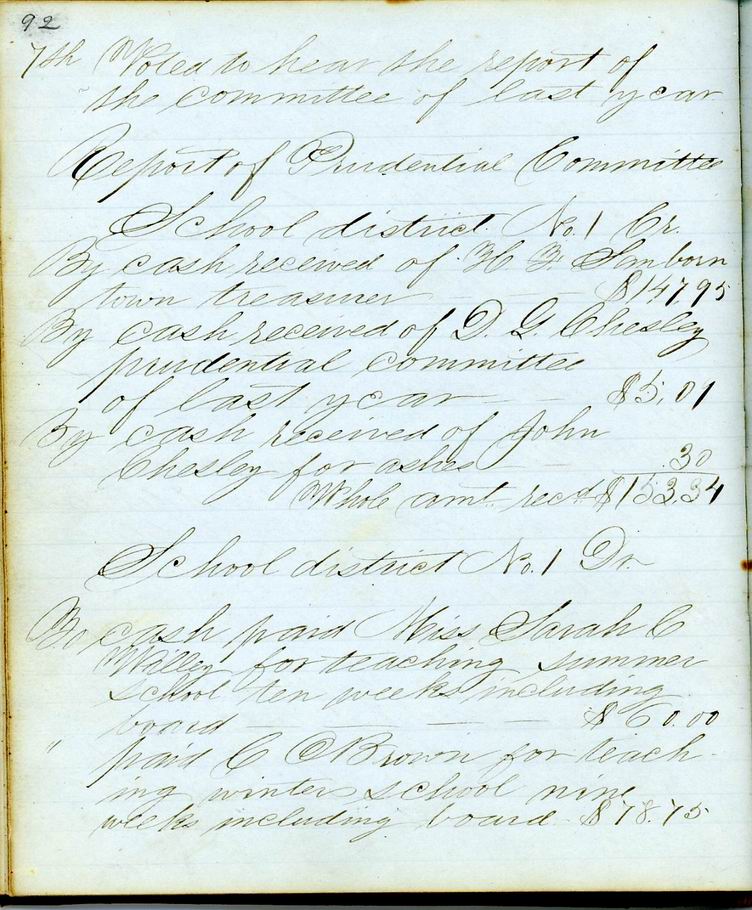 92
7th Voted to hear the report of
the committee of last year
Report of Prudential Committee
School district No. 1 Cr.
By cash received of H F
town treasurer $147.95
By cash received of D. G. Chesley
prudential committee
of last year $5.01
By cash received of John
Chesley for ashes .30
Whole amt. recd $153.34
School district No. 1 Dr.
cash paid Miss Sarah C
Willey for teaching summer
school ten weeks including
board $60.00
" paid C O Brown for teach
ing winter school nine
weeks including board $78.75